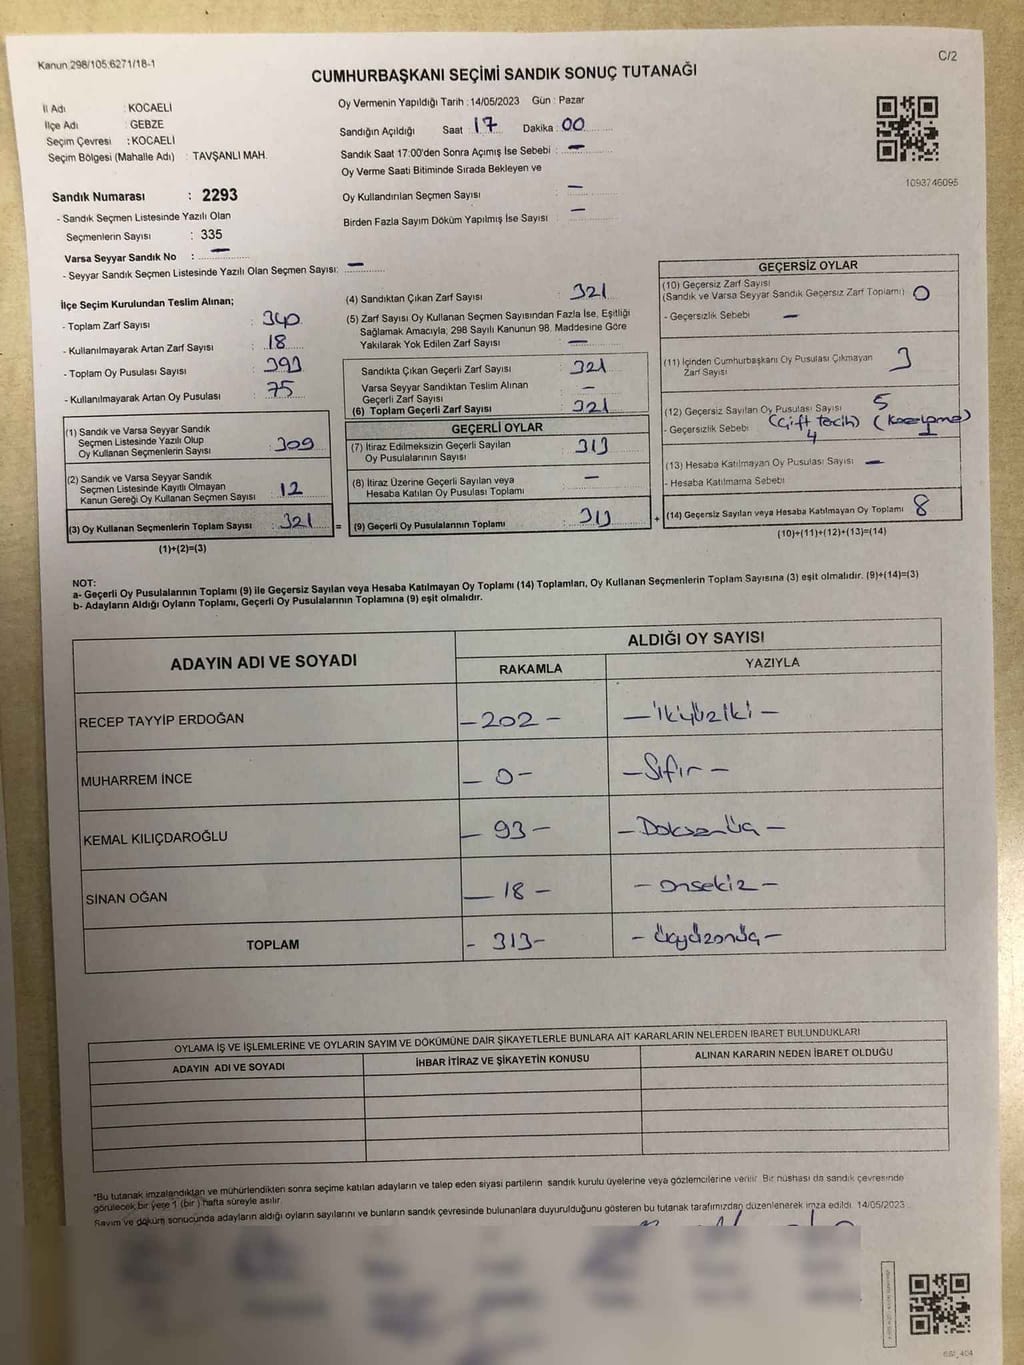 Kanun 298/105 6271/18-1
C/2
CUMHURBAŞKANI SEÇİMİ SANDIK SONUÇ TUTANAĞI
İl Adı : KOCAELİ
İlçe Adı : GEBZE
Seçim Çevresi : KOCAELİ
Seçim Bölgesi (Mahalle Adı) : TAVŞANLI MAH.
Oy Vermenin Yapıldığı Tarih : 14/05/2023 Gün : Pazar
Sandığın Açıldığı Saat : 17 Dakika : 00
Sandık Saat 17:00'den Sonra Açımış İse Sebebi : —
Oy Verme Saati Bitiminde Sırada Bekleyen ve
Oy Kullandırılan Seçmen Sayısı : —
Birden Fazla Sayım Döküm Yapılmış İse Sayısı : —
1093746095
Sandık Numarası : 2293
- Sandık Seçmen Listesinde Yazılı Olan
Seçmenlerin Sayısı : 335
Varsa Seyyar Sandık No : —
- Seyyar Sandık Seçmen Listesinde Yazılı Olan Seçmen Sayısı: —
İlçe Seçim Kurulundan Teslim Alınan;
- Toplam Zarf Sayısı : 340
- Kullanılmayarak Artan Zarf Sayısı : 18
- Toplam Oy Pusulası Sayısı : 393
- Kullanılmayarak Artan Oy Pusulası : 75
(1) Sandık ve Varsa Seyyar Sandık
Seçmen Listesinde Yazılı Olup
Oy Kullanan Seçmenlerin Sayısı : 309
(2) Sandık ve Varsa Seyyar Sandık
Seçmen Listesinde Kayıtlı Olmayan
Kanun Gereği Oy Kullanan Seçmen Sayısı : 12
(3) Oy Kullanan Seçmenlerin Toplam Sayısı : 321 =
(1)+(2)=(3)
(4) Sandıktan Çıkan Zarf Sayısı : 321
(5) Zarf Sayısı Oy Kullanan Seçmen Sayısından Fazla İse, Eşitliği
Sağlamak Amacıyla, 298 Sayılı Kanunun 98. Maddesine Göre
Yakılarak Yok Edilen Zarf Sayısı : —
Sandıkta Çıkan Geçerli Zarf Sayısı : 321
Varsa Seyyar Sandıktan Teslim Alınan
Geçerli Zarf Sayısı : —
(6) Toplam Geçerli Zarf Sayısı : 321
GEÇERLİ OYLAR
(7) İtiraz Edilmeksizin Geçerli Sayılan
Oy Pusulalarının Sayısı : 313
(8) İtiraz Üzerine Geçerli Sayılan veya
Hesaba Katılan Oy Pusulası Toplamı : —
(9) Geçerli Oy Pusulalarının Toplamı : 313 +
GEÇERSİZ OYLAR
(10) Geçersiz Zarf Sayısı
(Sandık ve Varsa Seyyar Sandık Geçersiz Zarf Toplamı) : 0
- Geçersizlik Sebebi : —
(11) İçinden Cumhurbaşkanı Oy Pusulası Çıkmayan
Zarf Sayısı : 3
(12) Geçersiz Sayılan Oy Pusulası Sayısı : 5
- Geçersizlik Sebebi : (Çift tercih) 4
(13) Hesaba Katılmayan Oy Pusulası Sayısı : —
- Hesaba Katılmama Sebebi
(14) Geçersiz Sayılan veya Hesaba Katılmayan Oy Toplamı : 8
(10)+(11)+(12)+(13)=(14)
NOT:
a- Geçerli Oy Pusulalarının Toplamı (9) ile Geçersiz Sayılan veya Hesaba Katılmayan Oy Toplamı (14) Toplamları, Oy Kullanan Seçmenlerin Toplam Sayısına (3) eşit olmalıdır. (9)+(14)=(3)
b- Adayların Aldığı Oyların Toplamı, Geçerli Oy Pusulalarının Toplamına (9) eşit olmalıdır.
ADAYIN ADI VE SOYADI
ALDIĞI OY SAYISI
RAKAMLA YAZIYLA
RECEP TAYYİP ERDOĞAN -202- -ikiyüziki-
MUHARREM İNCE -0- -Sıfır-
KEMAL KILIÇDAROĞLU -93- -Doksanüç-
SİNAN OĞAN -18- -onsekiz-
TOPLAM -313- -üçyüzonüç-
OYLAMA İŞ VE İŞLEMLERİNE VE OYLARIN SAYIM VE DÖKÜMÜNE DAİR ŞİKAYETLERLE BUNLARA AİT KARARLARIN NELERDEN İBARET BULUNDUKLARI
ADAYIN ADI VE SOYADI İHBAR İTİRAZ VE ŞİKAYETİN KONUSU ALINAN KARARIN NEDEN İBARET OLDUĞU
*Bu tutanak imzalandıktan ve mühürlendikten sonra seçime katılan adayların ve talep eden siyasi partilerin sandık kurulu üyelerine veya gözlemcilerine verilir. Bir nüshası da sandık çevresinde
görülecek bir yere 1 (bir ) hafta süreyle asılır.
Sayım ve döküm sonucunda adayların aldığı oyların sayılarını ve bunların sandık çevresinde bulunanlara duyurulduğunu gösteren bu tutanak tarafımızdan düzenlenerek imza edildi. 14/05/2023